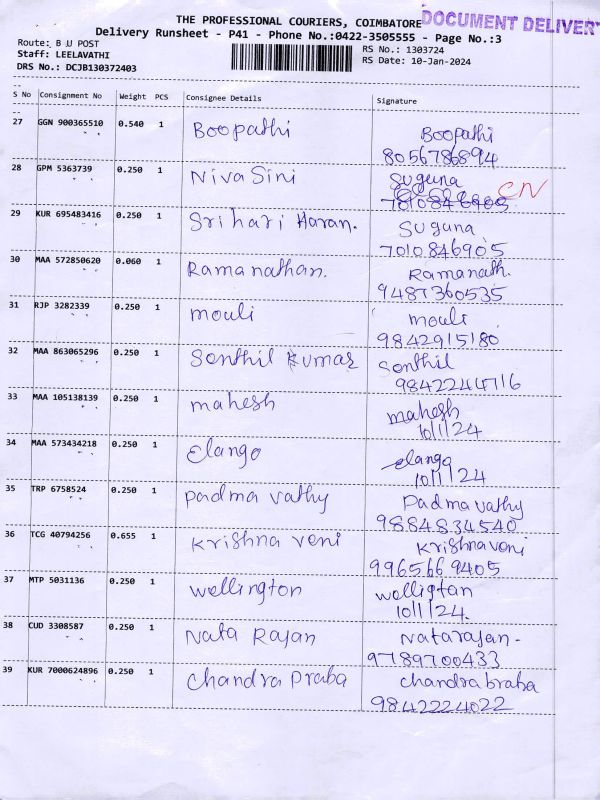 THE PROFESSIONAL COURIERS, COIMBATORE
DOCUMENT DELIVERY
Delivery Runsheet - P41 - Phone No.:0422-3505555 - Page No.:3
Route: B U POST
RS No.: 1303724
Staff: LEELAVATHI
RS Date: 10-Jan-2024
DRS No.: DCJB130372403
S No Consignment No Weight PCS Consignee Details Signature
27 GGN 900365510 0.540 1 Boopathi Boopathi
8056786894
28 GPM 5363739 0.250 1 Niva Sini Suguna CN
7810846905
29 KUR 695483416 0.250 1 Sri hari Haran. Suguna
7010846905
30 MAA 572850620 0.060 1 Ramanathan. Ramanath.
9487360535
31 RJP 3282339 0.250 1 mouli mouli
9842915180
32 MAA 863065296 0.250 1 Senthil Kumar Senthil
9842244716
33 MAA 105138139 0.250 1 mahesh mahesh
10/1/24
34 MAA 573434218 0.250 1 Elango elango
10/1/24
35 TRP 6758524 0.250 1 Padma vathy Padma vathy
9884834540
36 TCG 40794256 0.655 1 Krishna veni Krishna veni
9965669405
37 MTP 5031136 0.250 1 wellington welligtan
10/1/24.
38 CUD 3308587 0.250 1 Nata Rajan Natarajan-
9789700433
39 KUR 7000624896 0.250 1 Chandra Praba chandra braba
9842224022